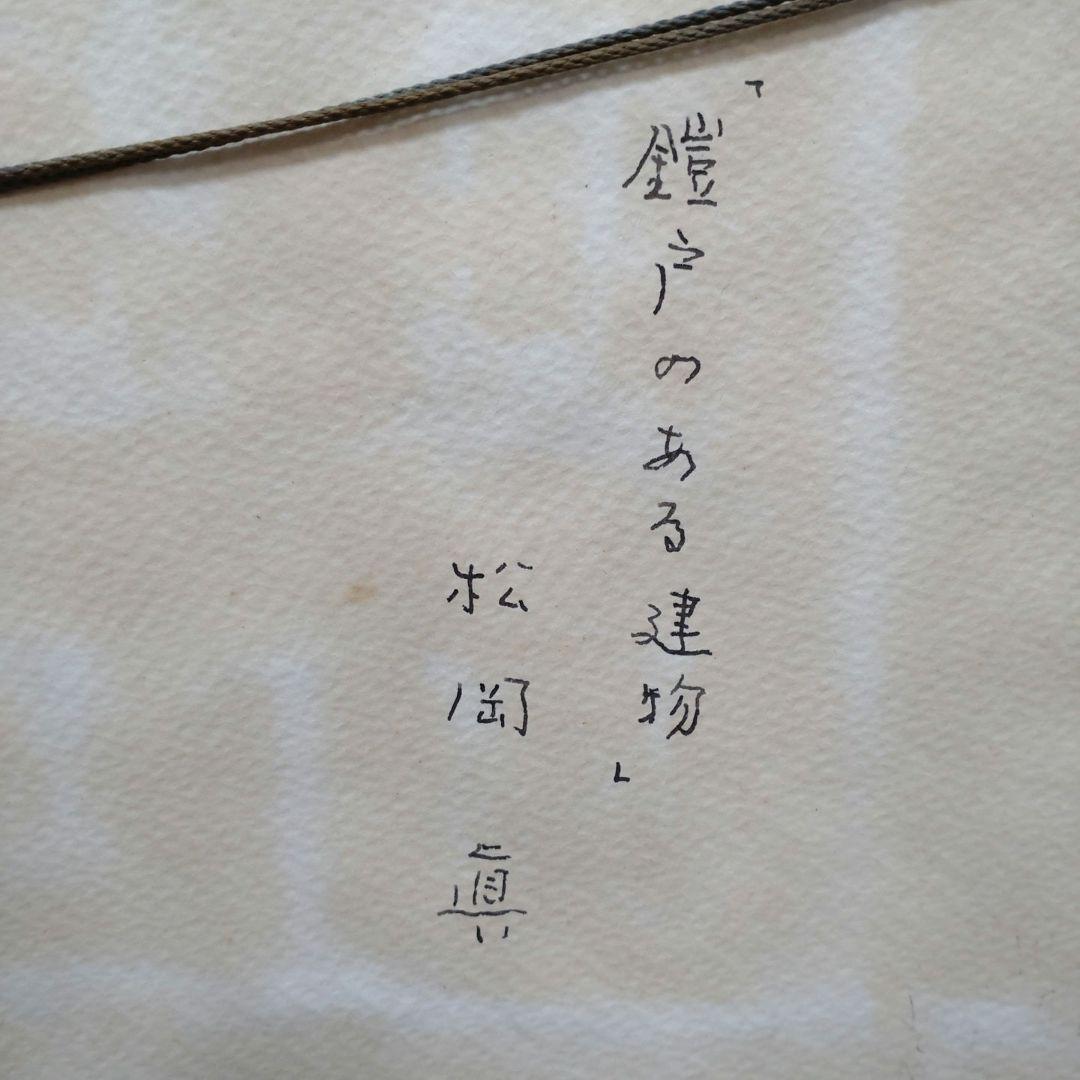 「鎧戸のある建物」
松岡 眞